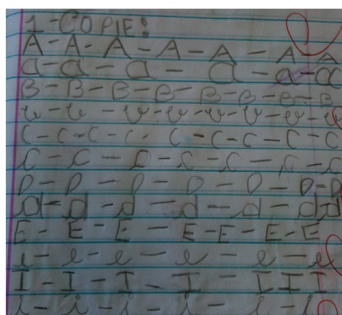 1-COPIE:
A-A-A-A-A-A-A
a-a-a-a-a-a
B-B-B-B-B-B-B-B
b-b-b-b-b-b-b
C-C-C-C-C-C-C-C-C
c-c-c-c-c-c-c
D-D-D-D-D-D-D
d-d-d-d-d-d-d
E-E-E-E-E-E-E
e-e-e-e-e-e-e
I-I-I-I-I-I-I
i-i-i-i-i-i-i